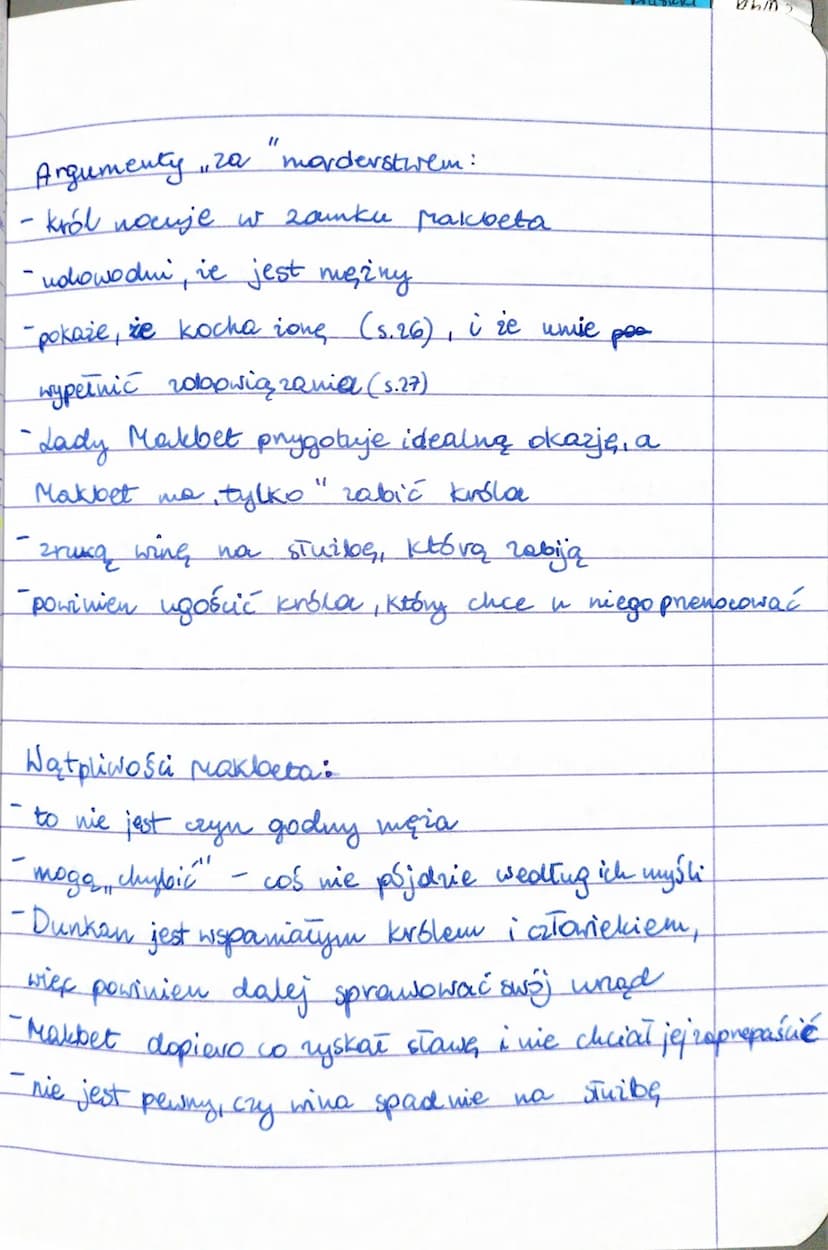 Argumenty „za" morderstwem:
- król nocuje w zamku Makbeta
- udowodni, że jest mężny
- pokaże, że kocha żonę (s.26), i że umie
wypełnić zobowiązania (s.27)
- Lady Makbet przygotuje idealną okazję, a
Makbet ma „tylko" zabić króla
- zrzucą winę na służbę, którą zabiją
- powinien ugościć króla, który chce u niego przenocować
Wątpliwości Makbeta:
- to nie jest czyn godny męża
- mogą „chybić" - coś nie pójdzie według ich myśli
- Dunkan jest wspaniałym królem i człowiekiem,
więc powinien dalej sprawować swój urząd
- Makbet dopiero co zyskał sławę i nie chciał jej zaprzepaścić
- nie jest pewny, czy wina spadnie na służbę